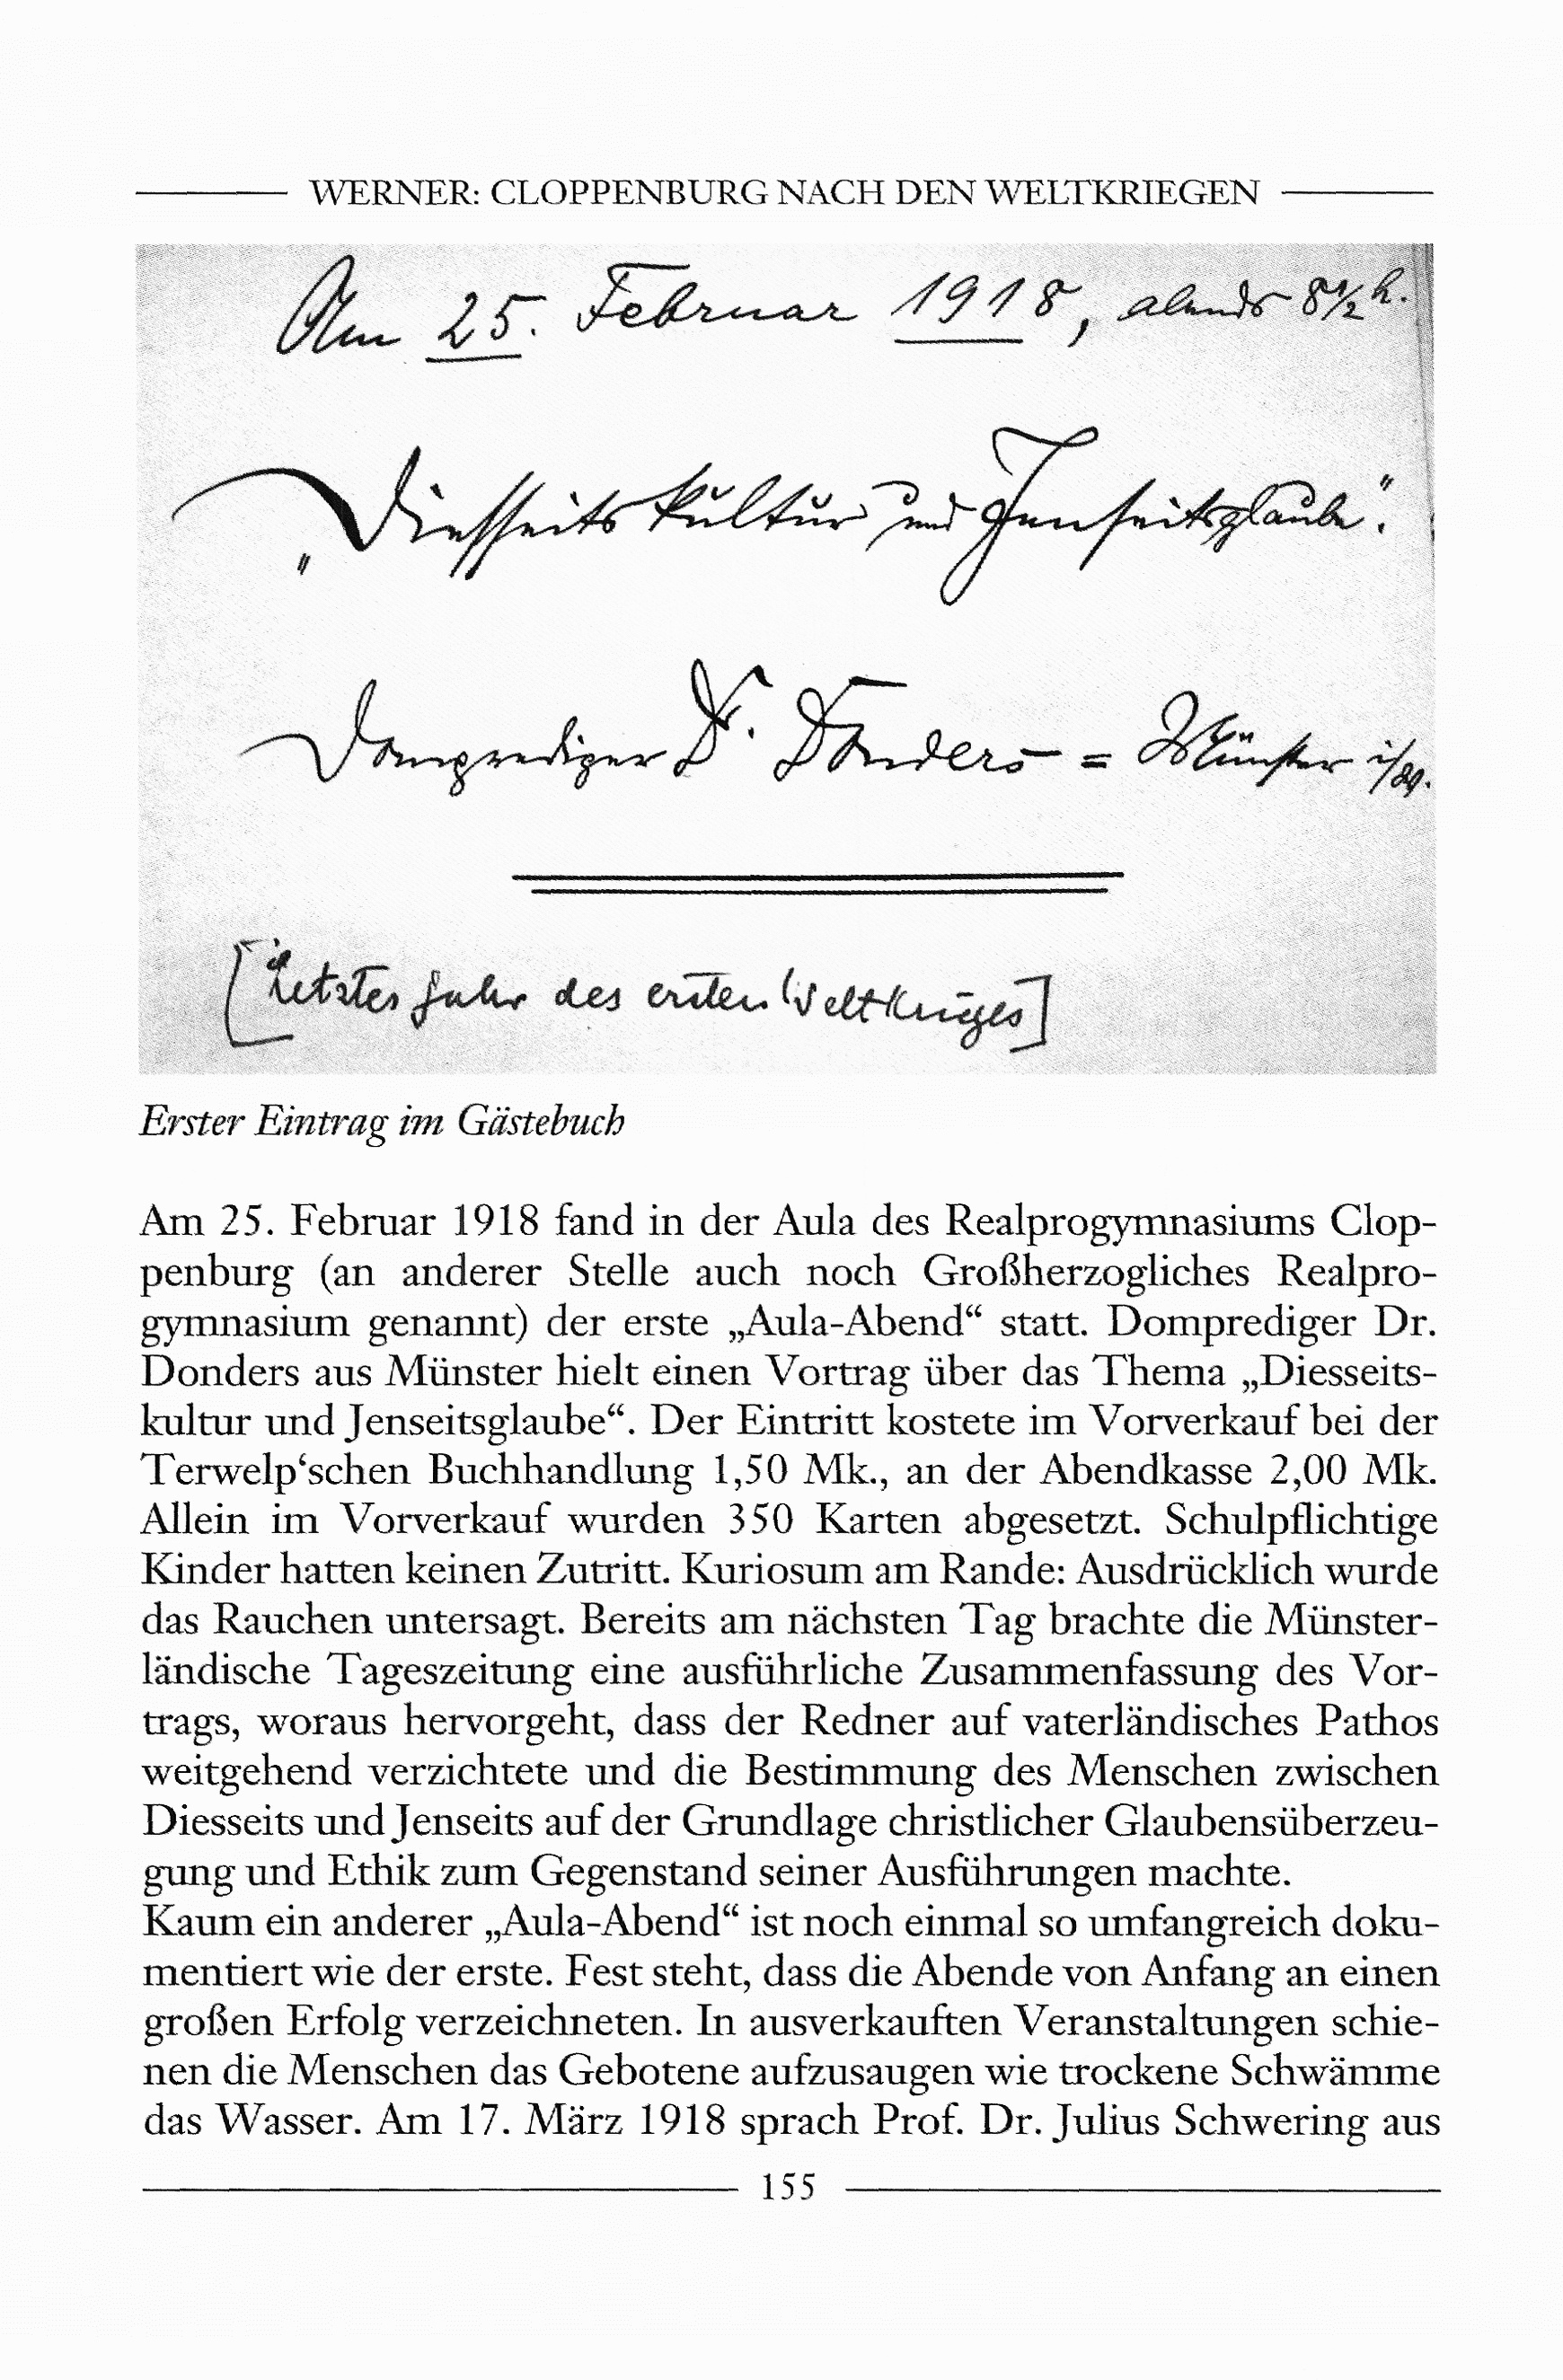 WERNER: CLOPPENBURG NACH DEN WELTKRIEGEN
Am 25. Februar 1918, abends 8½ h.
„Diesseitskultur und Jenseitsglaube".
Domprediger Dr. Donders = Münster i/W.
[Letztes Jahr des ersten Weltkrieges]
Erster Eintrag im Gästebuch
Am 25. Februar 1918 fand in der Aula des Realprogymnasiums Clop-
penburg (an anderer Stelle auch noch Großherzogliches Realpro-
gymnasium genannt) der erste „Aula-Abend“ statt. Domprediger Dr.
Donders aus Münster hielt einen Vortrag über das Thema „Diesseits-
kultur und Jenseitsglaube“. Der Eintritt kostete im Vorverkauf bei der
Terwelp‘schen Buchhandlung 1,50 Mk., an der Abendkasse 2,00 Mk.
Allein im Vorverkauf wurden 350 Karten abgesetzt. Schulpflichtige
Kinder hatten keinen Zutritt. Kuriosum am Rande: Ausdrücklich wurde
das Rauchen untersagt. Bereits am nächsten Tag brachte die Münster-
ländische Tageszeitung eine ausführliche Zusammenfassung des Vor-
trags, woraus hervorgeht, dass der Redner auf vaterländisches Pathos
weitgehend verzichtete und die Bestimmung des Menschen zwischen
Diesseits und Jenseits auf der Grundlage christlicher Glaubensüberzeu-
gung und Ethik zum Gegenstand seiner Ausführungen machte.
Kaum ein anderer „Aula-Abend“ ist noch einmal so umfangreich doku-
mentiert wie der erste. Fest steht, dass die Abende von Anfang an einen
großen Erfolg verzeichneten. In ausverkauften Veranstaltungen schie-
nen die Menschen das Gebotene aufzusaugen wie trockene Schwämme
das Wasser. Am 17. März 1918 sprach Prof. Dr. Julius Schwering aus
155